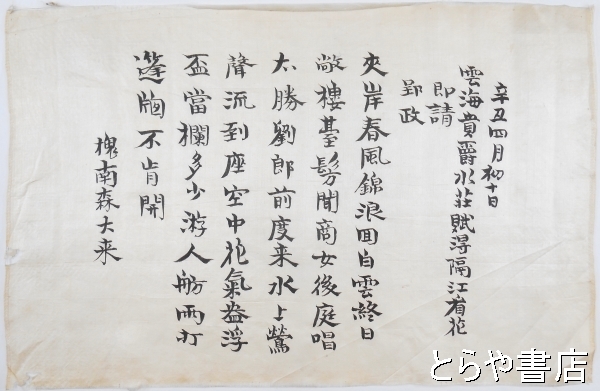 辛丑四月初十日
雲海貴爵水荘賦得隔江看花
即請
郢政
夾岸春風錦浪回白雲終日
敞樓基髣聞商女後庭唱
太勝劉郎前度来水上鶯
聲流到座空中花氣盎浮
盃當欄多少游人舫両打
蓬牕不肯開
槐南森大来
とらや書店